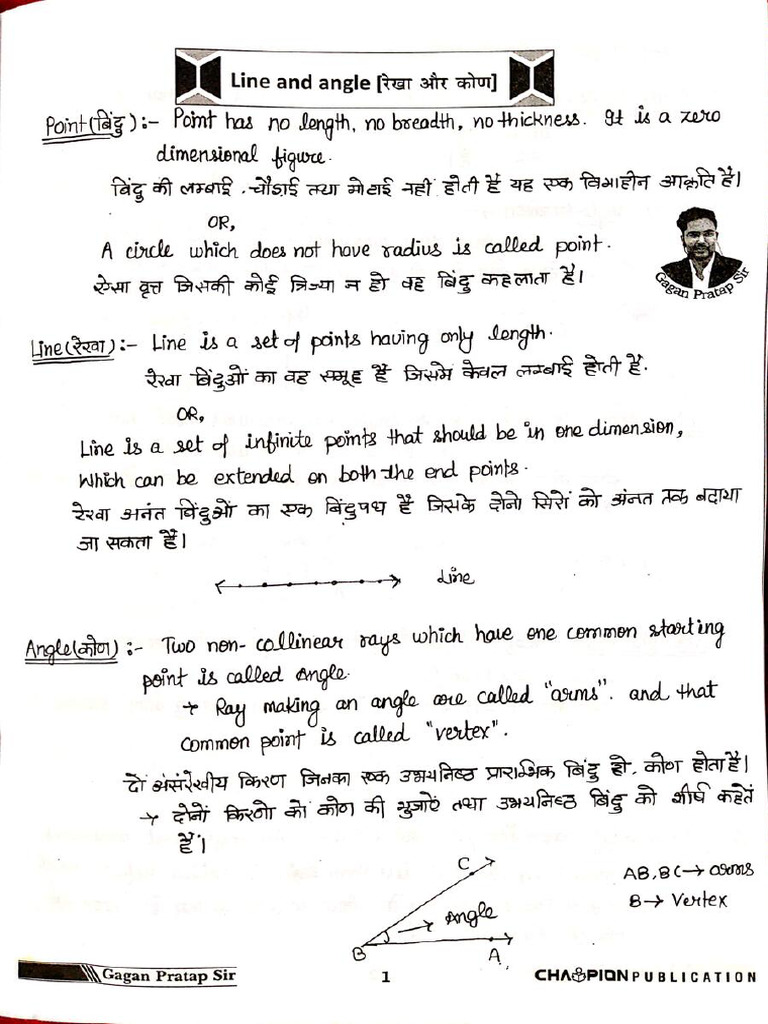 Line and angle [रेखा और कोण]
Point (बिंदु) :- Point has no length, no breadth, no thickness. It is a zero
dimensional figure.
बिंदु की लम्बाई, चौडाई तथा मोटाई नहीं होती है यह एक विमाहीन आकृति है।
OR,
A circle which does not have radius is called point.
ऐसा वृत्त जिसकी कोई त्रिज्या न हो वह बिंदु कहलाता है।
Gagan Pratap Sir
Line (रेखा) :- Line is a set of points having only length.
रेखा बिंदुओं का वह समूह है जिसमें केवल लम्बाई होती है.
OR,
Line is a set of infinite points that should be in one dimension,
which can be extended on both the end points.
रेखा अनंत बिंदुओं का एक बिंदुपथ है जिसके दोनो सिरों को अंनत तक बढाया
जा सकता है।
Line
Angle (कोण) :- Two non-collinear rays which have one common starting
point is called Angle.
→ Ray making an angle are called "arms". and that
common point is called "vertex".
दो अंसंरेखीय किरण जिनका एक उभयनिष्ठ प्रारम्भिक बिंदु हो, कोण होता है।
→ दोनों किरणो को कोण की भुजाऐं तथा उभयनिष्ठ बिंदु को शीर्ष कहतें
हैं।
C
AB, BC → arms
Angle
B → Vertex
B
A
Gagan Pratap Sir
1
CHAMPION PUBLICATION